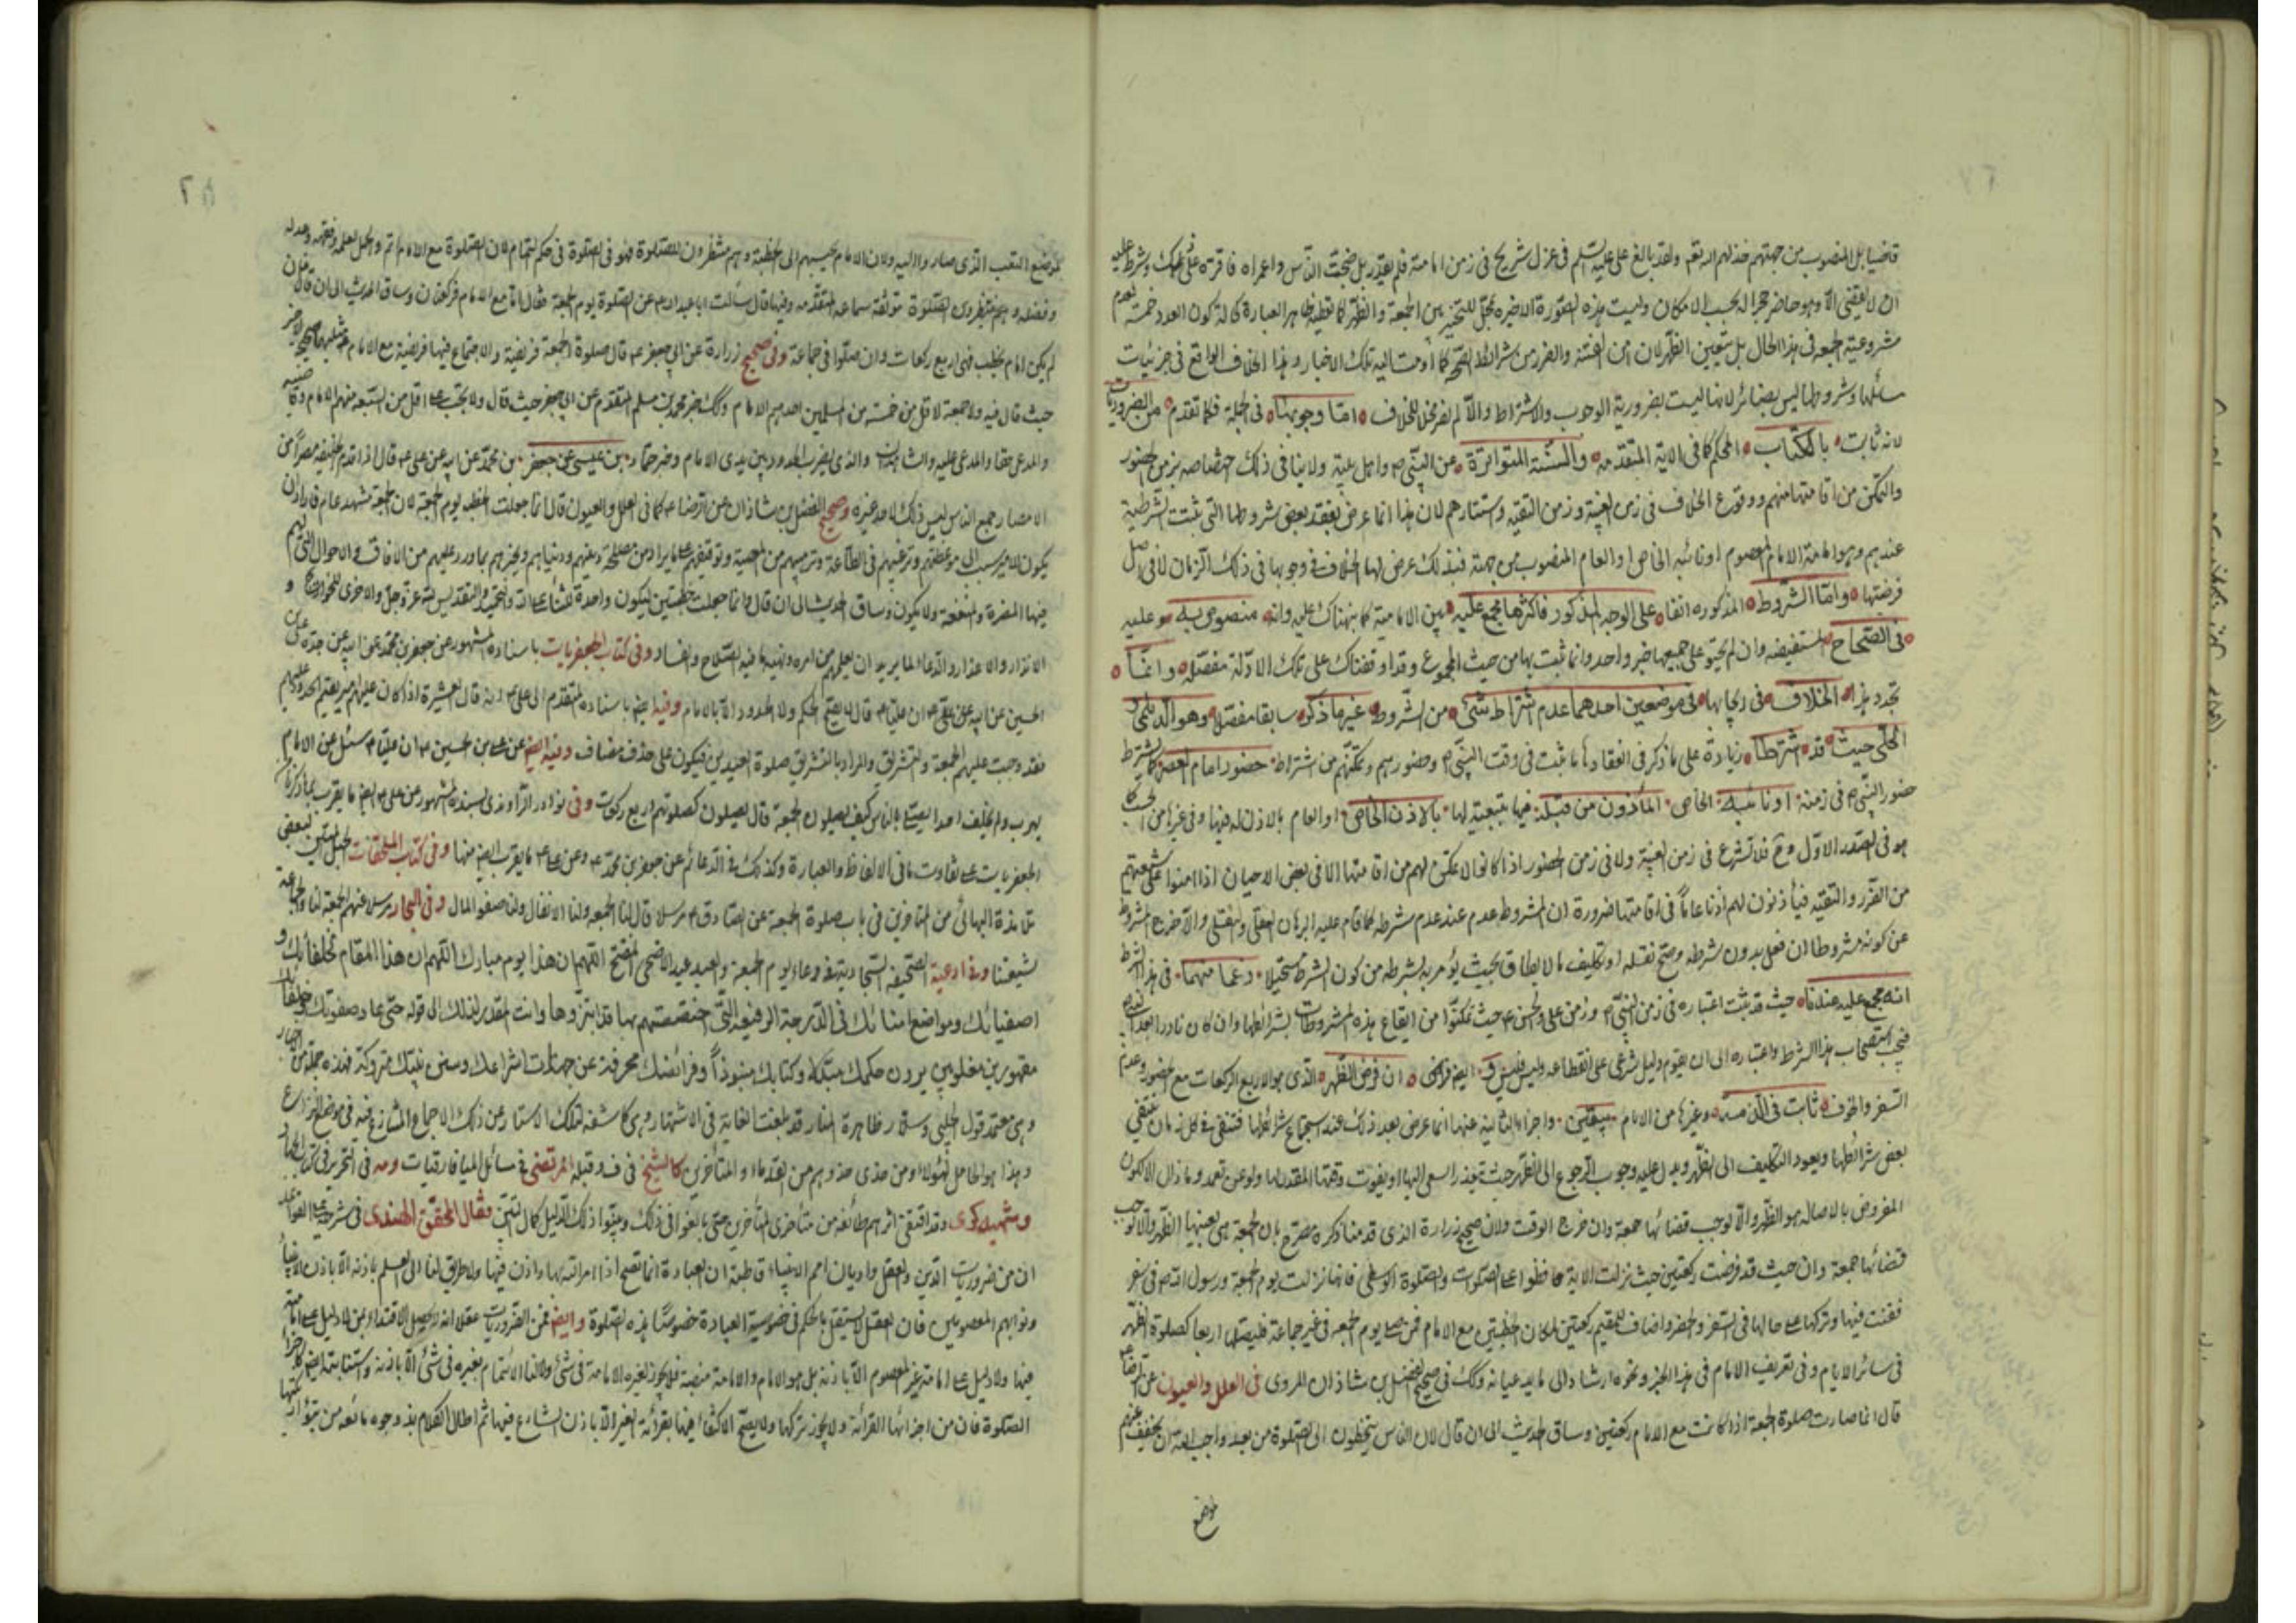 قاضيا بل المنصوب من جهتهم خذلهم الله نعم ولقد بالغ على عليه السلم في عزل شريح في زمن امامته فلم يقدر بل ضجت الناس واعمراه فاقره على ذلك وشرط عليه
ان لا يقضى الا وهو حاضر بحسب الامكان وليست هذه الصورة الاخيرة محل للتخيير بين الجمعة والظهر كما تعطيه ظاهر العبارة كحالة كون العدد خمسة لعدم
مشروعية الجمعة في هذا الحال بل يتعين الظهر لان امن الفتنة والضرر من شرائط الصحة كما اومت اليه تلك الاخبار وهذا الخلاف الواقع في جزئيات
مسائلها وشروطها ليس بضائر لانها ليست بضرورية الوجوب والاشتراط والا لم يفرض محلا للخلاف اما وجوبها في الجملة فكما تقدم من الضروريات
لانه ثابت بالكتاب المحكم كما في الاية المتقدمة والسنة المتواترة عن النبي ص واهل بيته ولا ينافى ذلك اختصاصه بزمن الحضور
والتمكن من اقامتها منهم ووقوع الخلاف في زمن الغيبة وزمن التقية واستتارهم لان هذا انما عرض بفقد بعض شروطها التي ثبتت الشرطية
عندهم وهو امامة الامام المعصوم او نائبه الخاص او العام المنصوب من جهته فبذلك عرض لها الخلاف في وجوبها في ذلك الزمان لا في اصل
فرضها واما الشروط المذكورة انفا على الوجه المذكور فاكثرها مجمع عليه بين الامامية كما نبهناك عليه وانه منصوص به و عليه
في الصحاح المستفيضة وان لم يحتو على جميعها خبر واحد وانما ثبت بها من حيث المجموع وقد اوقفناك على تلك الادلة مفصلة وانما
تجدد هذا الخلاف في ايجابها في موضعين احدهما عدم اشتراط شئ من الشروط غير ما ذكر سابقا مفصلا وهو الديلمى و
الحلى حيث قد اشترطا زيادة على ما ذكر في انعقادها ما ثبت في وقت النبي ص وحضورهم وتمكنهم من اشتراط حضور امام العصر كما يشترط
حضور النبي ص في زمنه او نائبه الخاص المأذون من قبله فيما يتبعه لها بالاذن الخاص او العام بالاذن له فيها وفي غيرها من
هو في الصدر الاول وح فلا تشرع في زمن الغيبة ولا في زمن الحضور اذا كانوا لا يمكن لهم من اقامتها الا في بعض الاحيان اذا امنوا على شيعتهم
من الضرر والتقية فيأذنون لهم اذنا عاما في اقامتها ضرورة ان المشروط عدم عند عدم شرطه كما قام عليه البرهان العقلى والنقلى والا خرج المشروط
عن كونه مشروطا ان فعل بدون شرطه وصح نقله او تكليف ما لا يطاق بحيث يؤمر به بشرطه من كون الشرط مستحيلا وزعما منهما في هذا الشرط
انه مجمع عليه عندنا حيث قد ثبت اعتباره في زمن النبي ص وزمن على والحسن ع حيث تمكنوا من ايقاع هذه المشروطات بشرائطها وان كان نادرا
فيجب استصحاب هذا الشرط واعتباره الى ان يقوم دليل شرعى على انقطاعه وليس فليس و ايضا ان فرض الظهر الذى هو الاربع الركعات مع الحضور وعدم
السفر والخوف ثابت في الذمة وغيرها من الامام بيقين واجزاء الثانية عنها انما عرض بعد ذلك عند استجماع شرائطها فتنتفى في كل زمان ينتفى
بعض شرائطها ويعود التكليف الى الظهر ويدل عليه وجوب الرجوع الى الظهر حيث يتعذر السعى اليها او يفوت وقتها المقدر لها ولو عن تعمد وما ذاك الا لكون
المفروض بالاصالة هو الظهر والا لوجب قضائها جمعة وان خرج الوقت ولان صحيح زرارة الذى قدمنا ذكره مصرح بان الجمعة هى بعينها الظهر والا لوجب
قضائها جمعة وان حيث قد فرضت ركعتين حيث نزلت الاية حافظوا على الصلوات والصلوة الوسطى فانها نزلت يوم الجمعة ورسول الله ص في سفر
فقنت فيها وتركها على حالها في السفر والحضر واضاف للمقيم ركعتين لمكان الخطبتين مع الامام فمن صلى يوم الجمعة في غير جماعة فليصلها اربعا كصلوة الظهر
في سائر الايام وفي تعريف الامام في هذا الخبر ونحوه ارشاد الى ما يدعيانه وكك في صحيح الفضل بن شاذان المروى في العلل والعيون عن الرضا ع
قال انما صارت صلوة الجمعة اذا كانت مع الامام ركعتين وساق الحديث الى ان قال لان الناس يتخطون الى الصلوة من بعد واحب الله ان يخفف عنهم
لموضع
لموضع التعب الذى صاروا اليه ولان الامام يحبسهم الى الخطبة وهم منتظرون للصلوة فهو في الصلوة في حكم التمام لان الصلوة مع الامام اتم واكمل لعلمه وفقهه وعدله
وفضله وهم منتظرون الصلوة موثقة سماعة المتقدمة وفيها قال سالت ابا عبد الله ع عن الصلوة يوم الجمعة فقال اما مع الامام فركعتان وساق الحديث الى ان قال فان
لم يكن امام يخطب فهى اربع ركعات وان صلوا في جماعة وفي صحيح زرارة عن ابى جعفر ع قال صلوة الجمعة فريضة والاجتماع فيها فريضة مع الامام
حيث قال فيه ولا جمعة لاقل من خمسة من المسلمين احدهم الامام وكك خبر محمد بن مسلم المتقدم عن ابى جعفر حيث قال ولا تجب على اقل من السبعة منهم الامام وقاضيه
والمدعى حقا والمدعى عليه والشاهدان والذى يضرب الحدود بين يدى الامام وخبر حماد بن عيسى عن جعفر بن محمد عن ابيه عن على ع قال اذا قدم الخليفة مصرا من
الامصار جمع الناس ليس ذلك لاحد غيره وصحيح الفضل بن شاذان عن الرضا ع كما في العلل والعيون قال انما جعلت الخطبة يوم الجمعة لان الجمعة مشهد عام فاراد ان
يكون للامير سبب الى موعظتهم وترغيبهم في الطاعة وترهيبهم من المعصية وتوقيفهم على ما يراد من مصلحة دينهم ودنياهم ويخبرهم بما ورد عليهم من الافاق والاحوال التي لهم
فيها المضرة والمنفعة ولا يكون وساق الحديث الى ان قال وانما جعلت خطبتين ليكون واحدة للثناء على الله والتمجيد والتقديس لله عز وجل والاخرى للحوائج و
الانذار والاعذار والدعاء لما يريد ان يعلمهم من امره ونهيه ما فيه الصلاح والفساد وفي كتاب الجعفريات باسناده المشهور عن جعفر بن محمد عن ابيه عن جده على بن
الحسين عن ابيه عن على ع ان عليا ع قال لا يصح الحكم ولا الحدود الا بالامام وفيه ايضا باسناده المتقدم الى على ع انه قال العشيرة اذا كان عليهم امير يقيم الحدود عليهم
فقد وجبت عليهم الجمعة والتشريق والمراد بالتشريق صلوة العيدين فيكون على حذف مضاف وفيه ايضا عن على بن الحسين ع ان عليا ع سئل عن الامام
يهرب ولم يخلف احدا يصلى بالناس كيف يصلون الجمعة قال يصلون كصلوتهم اربع ركعات وفي نوادر الراوندى بسنده المشهور عن على ع ايضا ما يقرب مما ذكرناه
الجعفريات على تفاوت ما في الالفاظ والعبارة وكذلك في الدعائم عن جعفر بن محمد ع وعن على ع ما يقرب ايضا منها وفي كتاب الملحقات لبعض
تلامذة البهائى من المتاخرين في باب صلوة الجمعة عن الصادق ع مرسلا قال لنا الجمعة ولنا الانفال ولنا صفو المال وفي البحار مرسلا عنهم الجمعة لنا والجماعة
لشيعتنا وفي ادعية الصحيفة السجادية في دعاء يوم الجمعة والعيد عيد الاضحى المفتتح اللهم ان هذا يوم مبارك اللهم ان هذا المقام لخلفائك و
اصفيائك ومواضع امنائك في الدرجة الرفيعة التي اختصصتهم بها قد ابتزوها وانت المقدر لذلك الى قوله حتى عاد صفوتك وخلفائك
مقهورين مغلوبين يرون حكمك مبتدلا وكتابك منبوذا وفرائضك محرفة عن جهات اشراعك وسنن نبيك متروكة فهذه جملة من اخبار
وهى معتمد قول الحلبى وسلار ظاهرة المنار قد بلغت الغاية في الاشتهار وهى كاشفة لتلك الاستار عن ذلك الاجماع المتنازع فيه في موضع النزاع
وهذا هو الحامل لهؤلاء ومن حذى حذوهم من القدماء والمتأخرين كالشيخ في ف وقبله المرتضى في مسائل الميافارقيات ومه في التحرير في كتاب الجهاد
وشهيد كرى وقد اقتفى اثرهم طائفة من متأخرى المتأخرين حتى بالغوا في ذلك وبينوا ذلك الدليل كمال التبين فقال المحقق الهندى في شرحه على القواعد
ان من ضروريات الدين والعقل واديان امم الانبياء قاطبة ان العبادة انما تصح اذا امر الله بها واذن فيها ولا طريق لنا الى العلم باذنه الا باذن الانبياء
ونوابهم المعصومين فان العقل لا يستقل بالحكم في خصوصية العبادة خصوصا هذه الصلوة وايضا فمن الضروريات عقلا انه لا يحصل الاقتداء بمن لا دليل على امامته
فيها ولا دليل على امامة غير المعصوم الا باذنه بل هو الامام والامامة منصبه فلا يجوز لغيره الامامة في شئ ولا لنا الائتمام بغيره في شئ الا باذنه واستنابته ايضا
الصلوة فان من اجزائها القرائة ولا يجوز تركها ولا يصح الاكتفاء فيها بقرائة الغير الا باذن الشارع فيها ثم اطال الكلام بذ وجوه